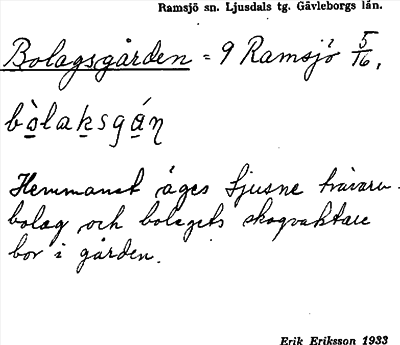 Ramsjö sn. Ljusdals tg. Gävleborgs län.
Bolagsgården = 9 Ramsjö 5/16,
bòlaksgán̥
Hemmanet äges Ljusne trävaru-
bolag och bolagets skogvaktare
bor i gården.
Erik Eriksson 1933